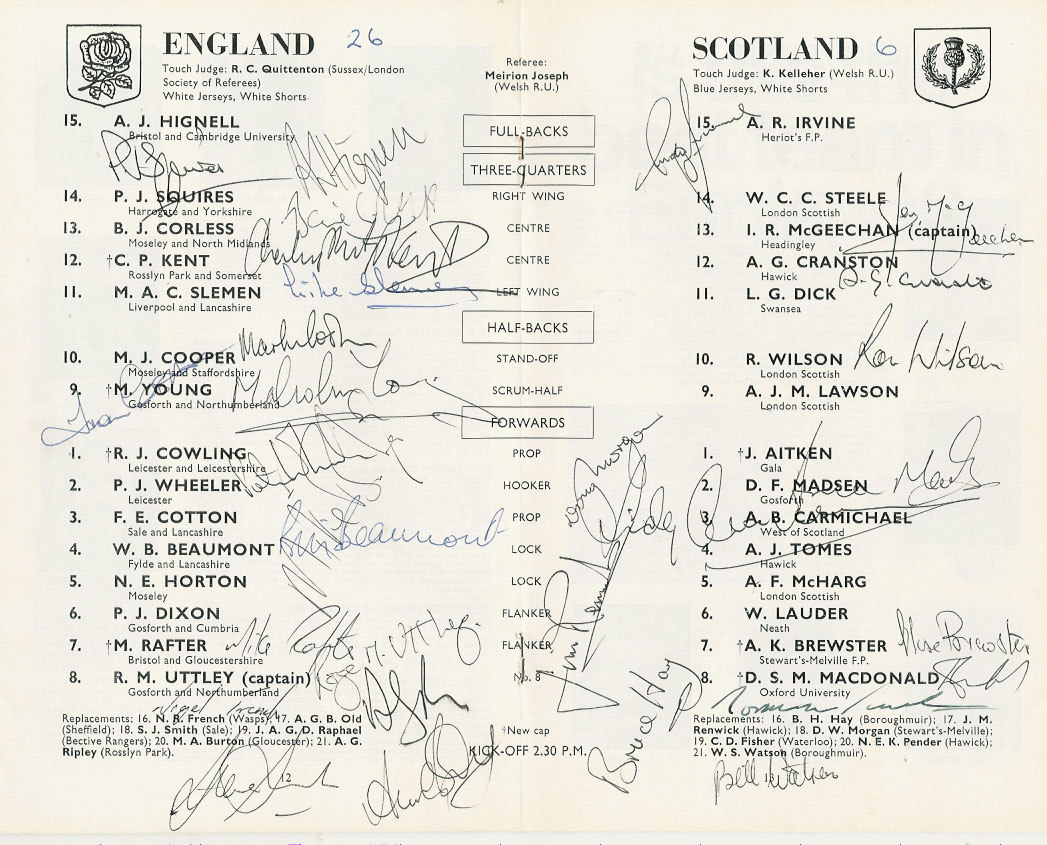 ENGLAND 26
Touch Judge: R. C. Quittenton (Sussex/London
Society of Referees)
White Jerseys, White Shorts
Referee:
Meirion Joseph
(Welsh R.U.)
SCOTLAND 6
Touch Judge: K. Kelleher (Welsh R.U.)
Blue Jerseys, White Shorts
15. A. J. HIGNELL
Bristol and Cambridge University
FULL-BACKS
15. A. R. IRVINE
Heriot's F.P.
THREE-QUARTERS
14. P. J. SQUIRES
Harrogate and Yorkshire
RIGHT WING
14. W. C. C. STEELE
London Scottish
13. B. J. CORLESS
Moseley and North Midlands
CENTRE
13. I. R. McGEECHAN (captain)
Headingley
12. †C. P. KENT
Rosslyn Park and Somerset
CENTRE
12. A. G. CRANSTON
Hawick
A. G. Cranston
11. M. A. C. SLEMEN
Liverpool and Lancashire
Mike Slemen
LEFT WING
11. L. G. DICK
Swansea
HALF-BACKS
10. M. J. COOPER
Moseley and Staffordshire
STAND-OFF
10. R. WILSON
London Scottish
Ron Wilson
9. †M. YOUNG
Gosforth and Northumberland
Malcolm Young
SCRUM-HALF
9. A. J. M. LAWSON
London Scottish
FORWARDS
1. †R. J. COWLING
Leicester and Leicestershire
PROP
1. †J. AITKEN
Gala
2. P. J. WHEELER
Leicester
HOOKER
Doug Morgan
2. D. F. MADSEN
Gosforth
3. F. E. COTTON
Sale and Lancashire
PROP
3. A. B. CARMICHAEL
West of Scotland
4. W. B. BEAUMONT
Fylde and Lancashire
Bill Beaumont
LOCK
4. A. J. TOMES
Hawick
5. N. E. HORTON
Moseley
LOCK
5. A. F. McHARG
London Scottish
6. P. J. DIXON
Gosforth and Cumbria
FLANKER
6. W. LAUDER
Neath
7. †M. RAFTER
Bristol and Gloucestershire
Mike Rafter
FLANKER
7. †A. K. BREWSTER
Stewart's-Melville F.P.
Brewster
8. R. M. UTTLEY (captain)
Gosforth and Northumberland
Nigel French
No. 8
Bruce Hay
8. †D. S. M. MACDONALD
Oxford University
Replacements: 16. N. R. French (Wasps); 17. A. G. B. Old
(Sheffield); 18. S. J. Smith (Sale); 19. J. A. G. D. Raphael
(Bective Rangers); 20. M. A. Burton (Gloucester); 21. A. G.
Ripley (Rosslyn Park).
†New cap
KICK-OFF 2.30 P.M.
Replacements: 16. B. H. Hay (Boroughmuir); 17. J. M.
Renwick (Hawick); 18. D. W. Morgan (Stewart's-Melville);
19. C. D. Fisher (Waterloo); 20. N. E. K. Pender (Hawick);
21. W. S. Watson (Boroughmuir).
Bill Watson
12